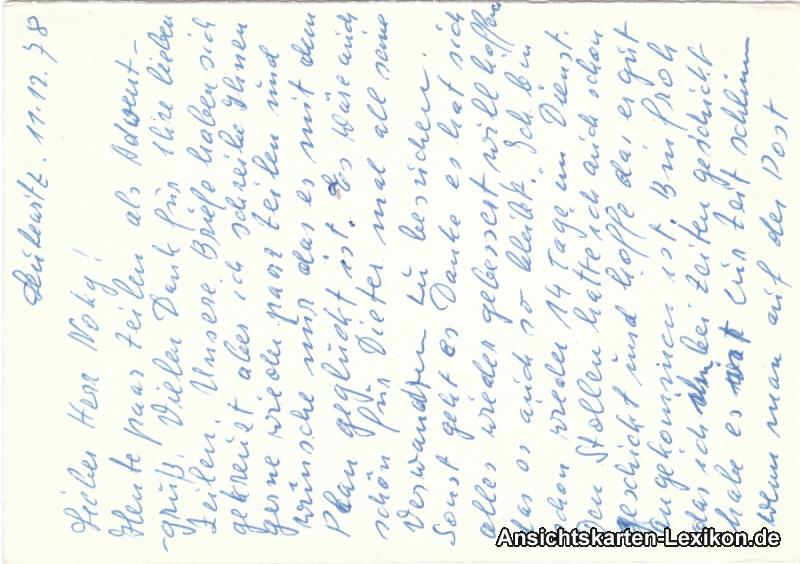 11.12.78
Lieber Herr Noky!
Heute paar Zeilen als Advent-
-gruß. Vielen Dank für Ihre lieben
Zeilen. Unsere Briefe haben sich
gekreuzt aber ich schreibe Ihnen
gerne wieder paar Zeilen und
wünsche nur das es mit dem
Plan geglückt ist. Es wäre auch
schön für Dieter mal all seine
Verwandten zu besuchen.
Sonst geht es Danke es hat sich
alles wieder gebessert will hoffen
das es auch so bleibt. Ich bin
schon wieder 14 Tage im Dienst.
Den Stollen hatte ich auch schon
geschickt und hoffe das er gut
angekommen ist. Bin froh
das ich ihn bei Zeiten geschickt
habe es war zur Zeit schlimm
wenn man auf der Post
Ansichtskarten-Lexikon.de